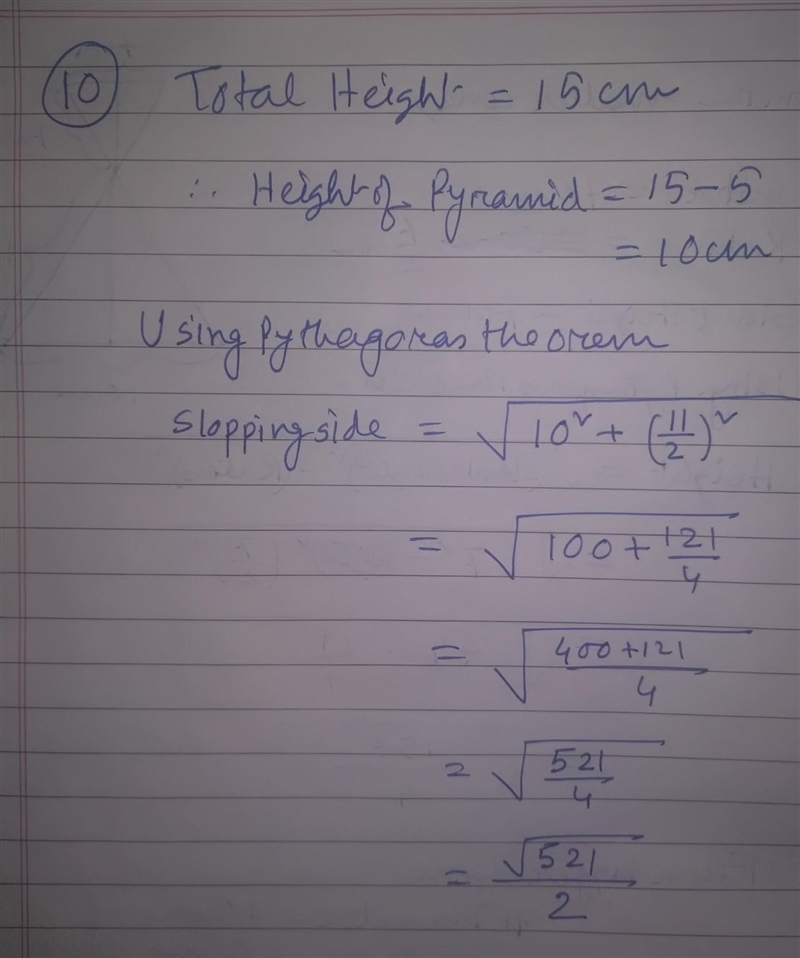 10 Total Height = 15 cm
∴ Height of Pyramid = 15 - 5
= 10 cm
Using Pythagoras theorem
Slopping side = √(10² + (11/2)²)
= √(100 + 121/4)
= √((400+121)/4)
= √(521/4)
= √521/2